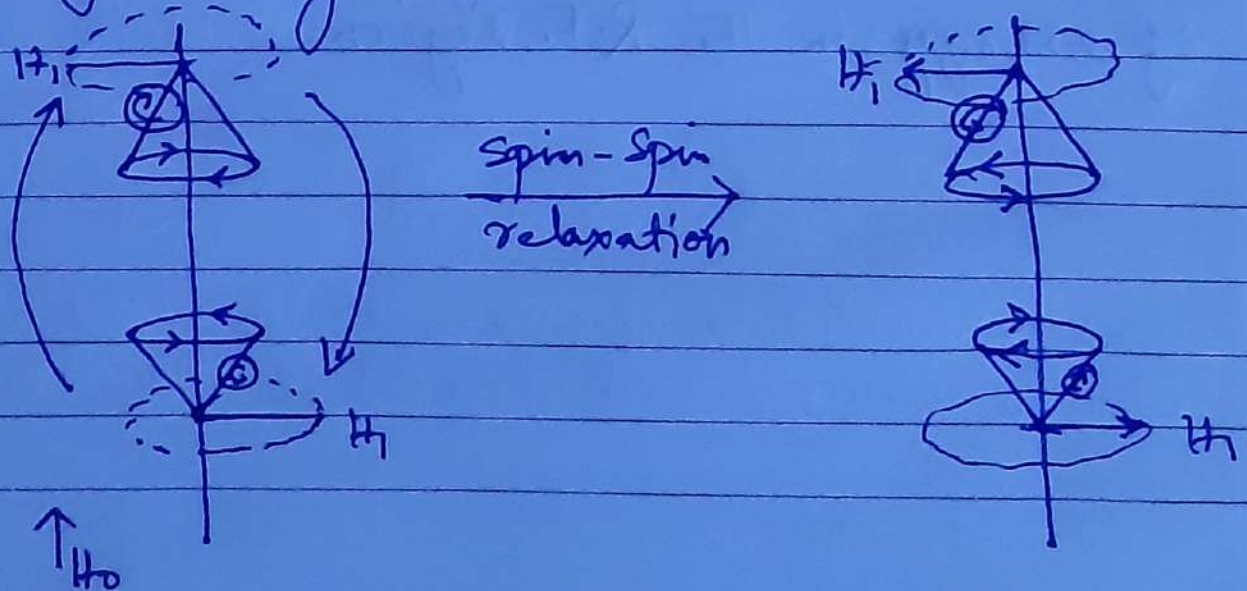 H₁
H₁
Spin-Spin
relaxation
H₁
H₁
H₀